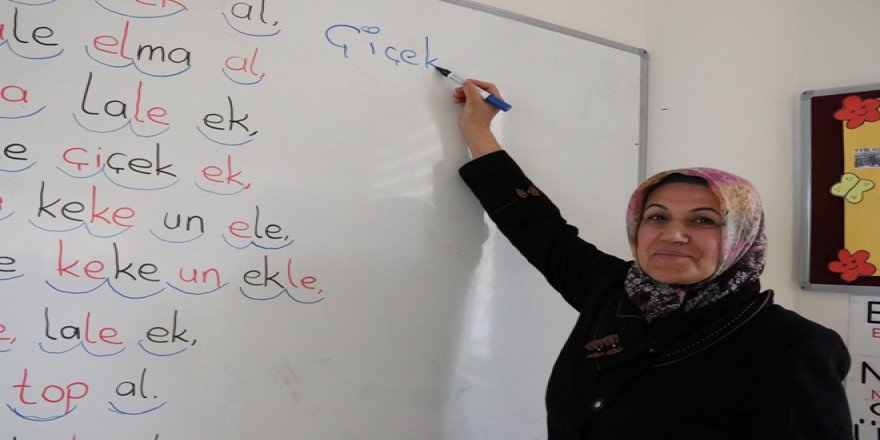 al.
elma al,
a Lale ek,
çiçek ek,
keke un ele.
keke un ekle,
lale ek,
top al.
Çiçek